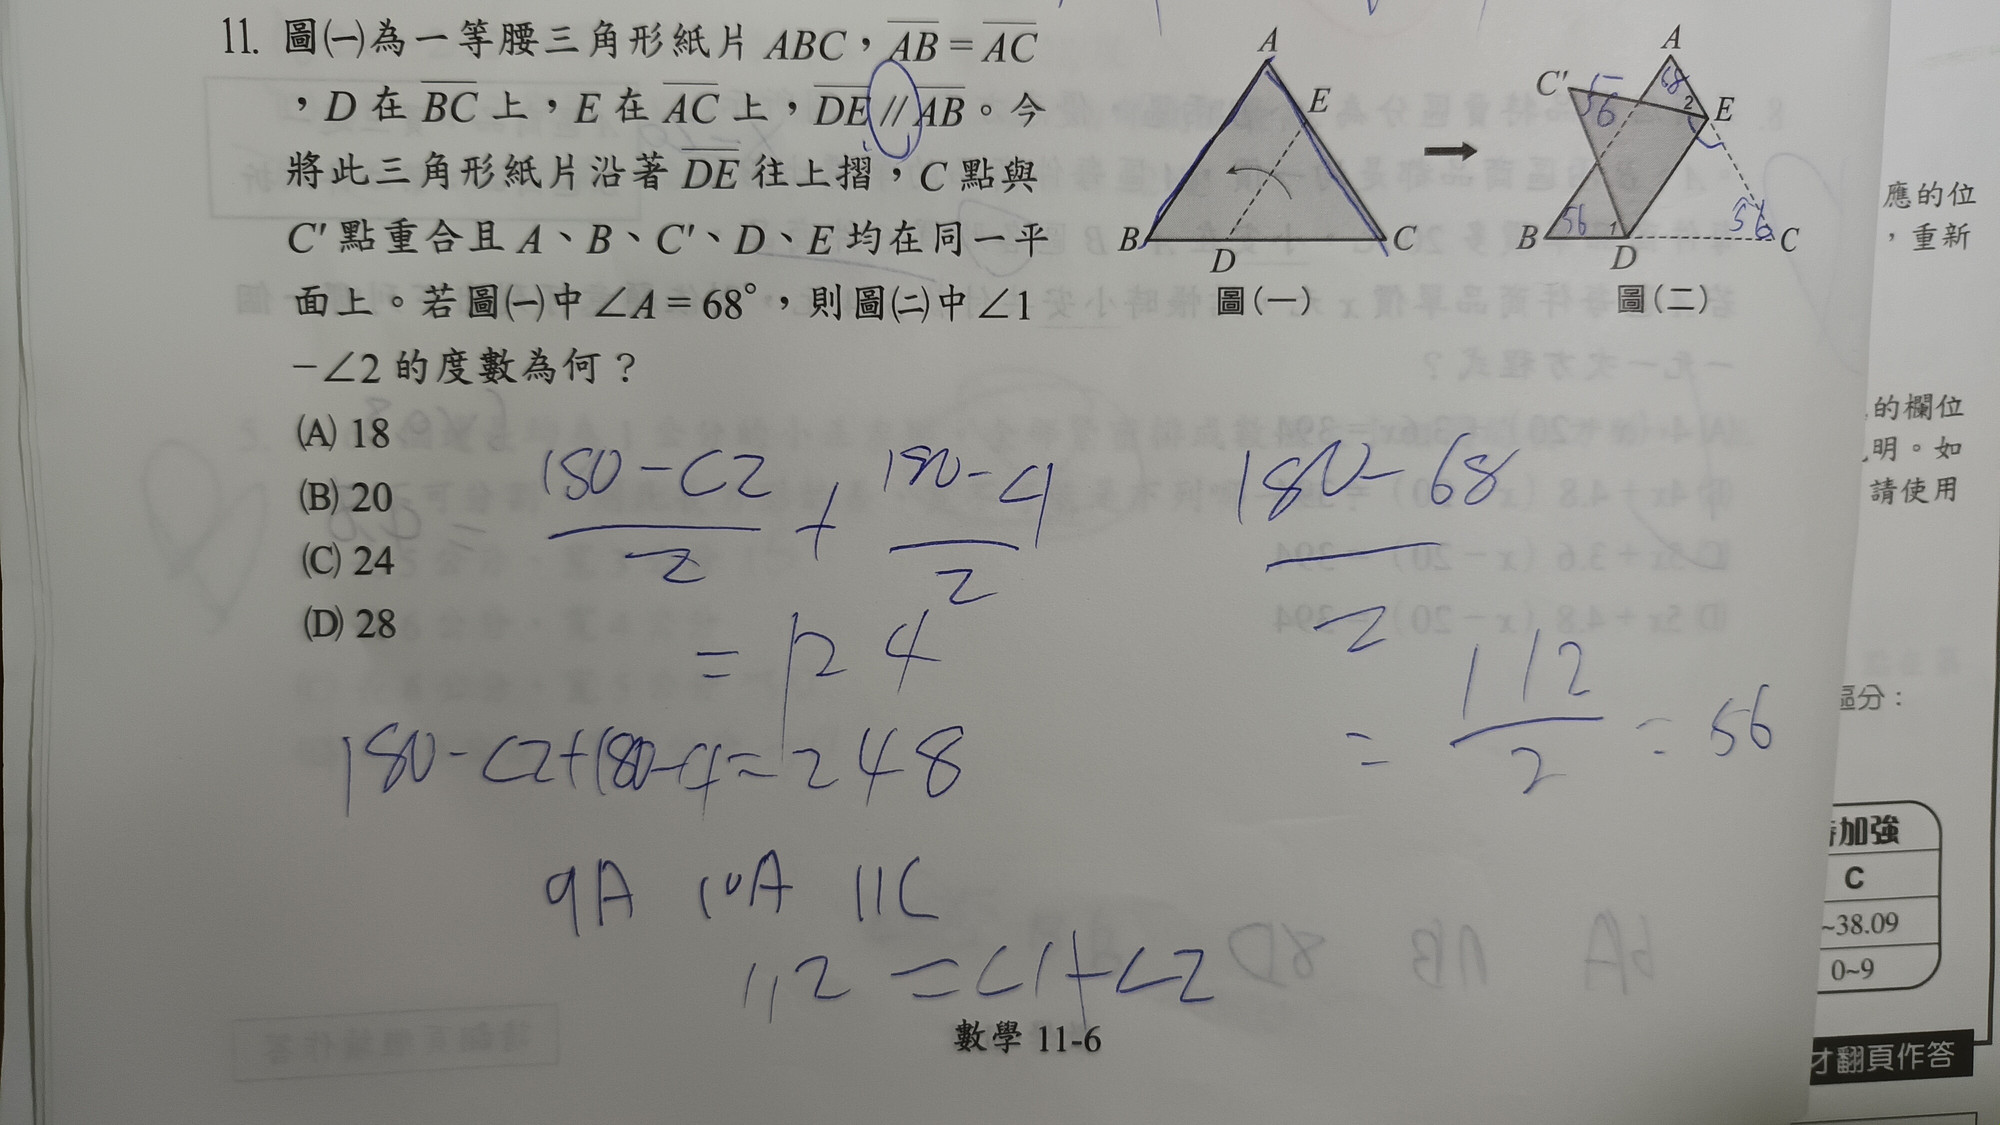 11. 圖㈠為一等腰三角形紙片 ABC，AB = AC
，D 在 BC 上，E 在 AC 上，DE // AB。今
將此三角形紙片沿著 DE 往上摺，C 點與
C' 點重合且 A、B、C'、D、E 均在同一平
面上。若圖㈠中 ∠A = 68°，則圖㈡中 ∠1
－∠2 的度數為何？
(A) 18
(B) 20
(C) 24
(D) 28
A
E
B
D
C
圖(一)
A
C'
E
B
D
C
圖(二)
68
56
2
56
1
56
180-∠2
2
+
180-∠1
2
= 124
180-68
2
= 112
2
= 56
180-∠2+180-∠1=248
9A 10A 11C
112 = ∠1+∠2
數學 11-6
應的位
，重新
的欄位
明。如
請使用
區分：
加強
C
~38.09
0~9
才翻頁作答